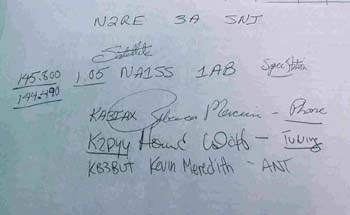 N2RE 3A SNJ
Satellite
145.800 1.05 NA1SS 1AB Space Station
144.490
KA3IAX Rebecca Mercuri - Phone
K2PYY Howie Wolff - Tuning
KB3BUT Kevin Meredith - ANT